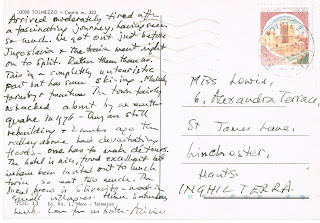 33028 TOLMEZZO - Carnia m. 323
Arrived moderately tired after
a fascinating journey, having seen
so much. We got out just before
Jugoslavia & the train went right
on to Split. Rather them than us.
This is a completely untouristic
part but has some skiing. Mainly
forestry & furniture. The town fairly
whacked about by an earth-
quake in 1976 - they are still
rebuilding & 2 weeks ago the
valley above had devastating
floods - one has to make detours.
The hotel is nice, food excellent but
we have been invited out to lunch
too. so eat too much. The
local
small villages. Home Saturday
Miss Lewis,
6, Alexandra Terrace,
St James Lane,
Winchester,
Hants.
INGHILTERRA.